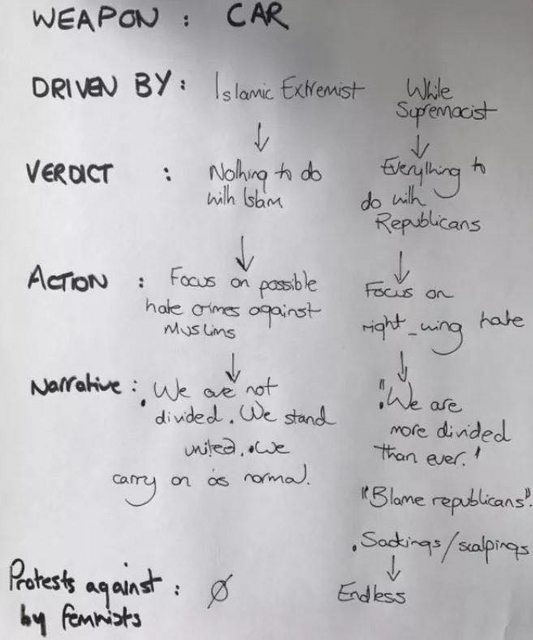 WEAPON : CAR
DRIVEN BY : Islamic Extremist
White
Supremacist
VERDICT : Nothing to do
with Islam
Everything to
do with
Republicans
ACTION : Focus on possible
hate crimes against
Muslims
Focus on
right_wing hate
Narrative : . We are not
divided. We stand
united. We
carry on as normal.
"We are
more divided
than ever."
"Blame republicans".
. Sackings/scalpings
Protests against :
by feminists
Ø
Endless